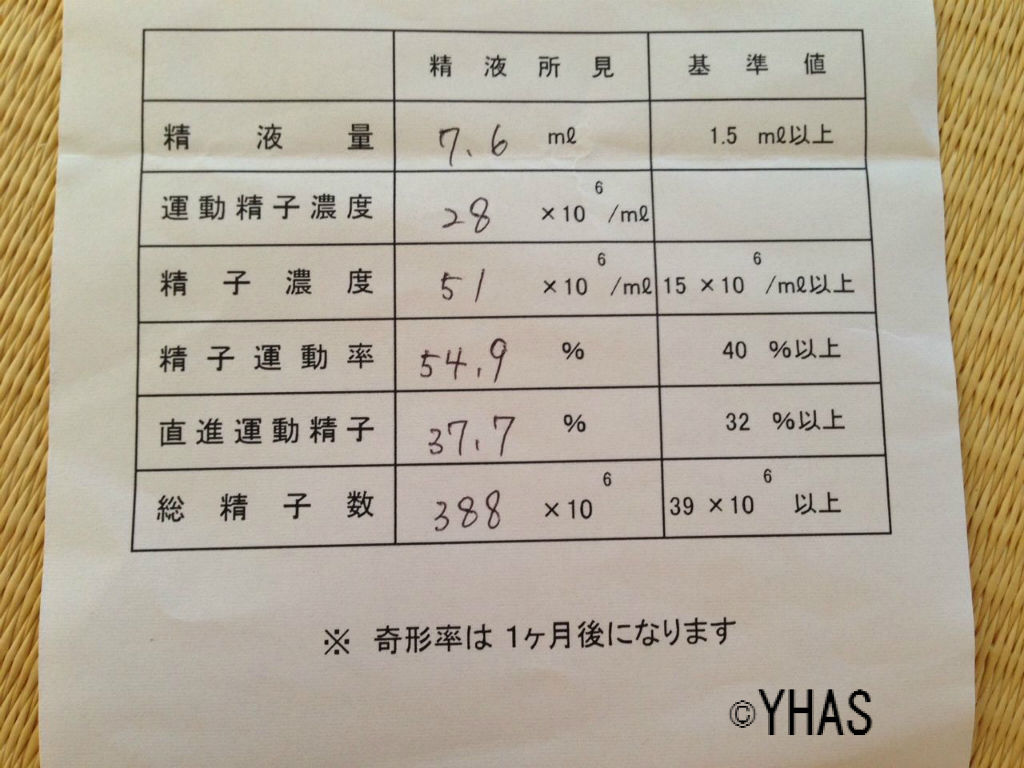 精液所見 基準値
精液量 7.6 ml 1.5 ml以上
運動精子濃度 28 ×10⁶/ml
精子濃度 51 ×10⁶/ml 15 ×10⁶/ml以上
精子運動率 54.9 % 40 %以上
直進運動精子 37.7 % 32 %以上
総精子数 388 ×10⁶ 39 ×10⁶ 以上
※ 奇形率は 1ヶ月後になります
©YHAS